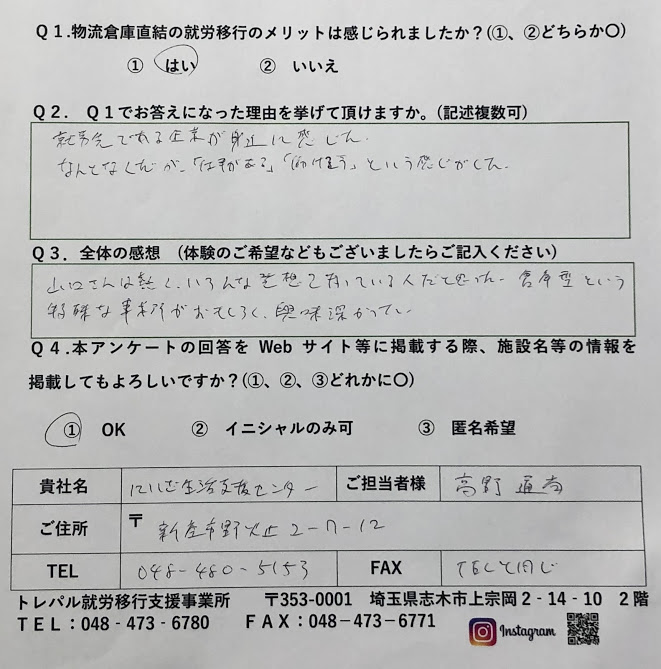 Q1.物流倉庫直結の就労移行のメリットは感じられましたか？(①、②どちらか〇)
① はい ② いいえ
Q2. Q1でお答えになった理由を挙げて頂けますか。(記述複数可)
就労先である企業が身近に感じた.
なんとなくだが、「仕事がある」「働けそう」という感じがした.
Q3. 全体の感想 (体験のご希望などもございましたらご記入ください)
山口さんは熱く、いろんな発想を持っている人だと思った. 倉庫型という
特殊な事業所がおもしろく、興味深かった.
Q4.本アンケートの回答を Web サイト等に掲載する際、施設名等の情報を
掲載してもよろしいですか？(①、②、③どれかに〇)
① OK ② イニシャルのみ可 ③ 匿名希望
貴社名 にいざ生活支援センター ご担当者様 高野
ご住所 〒 新座市野火止 2-7-12
TEL 048-480-5153 FAX TELと同じ
トレパル就労移行支援事業所 〒353-0001 埼玉県志木市上宗岡 2‐14‐10 2階
TEL：048‐473‐6780 FAX：048－473－6771
Instagram